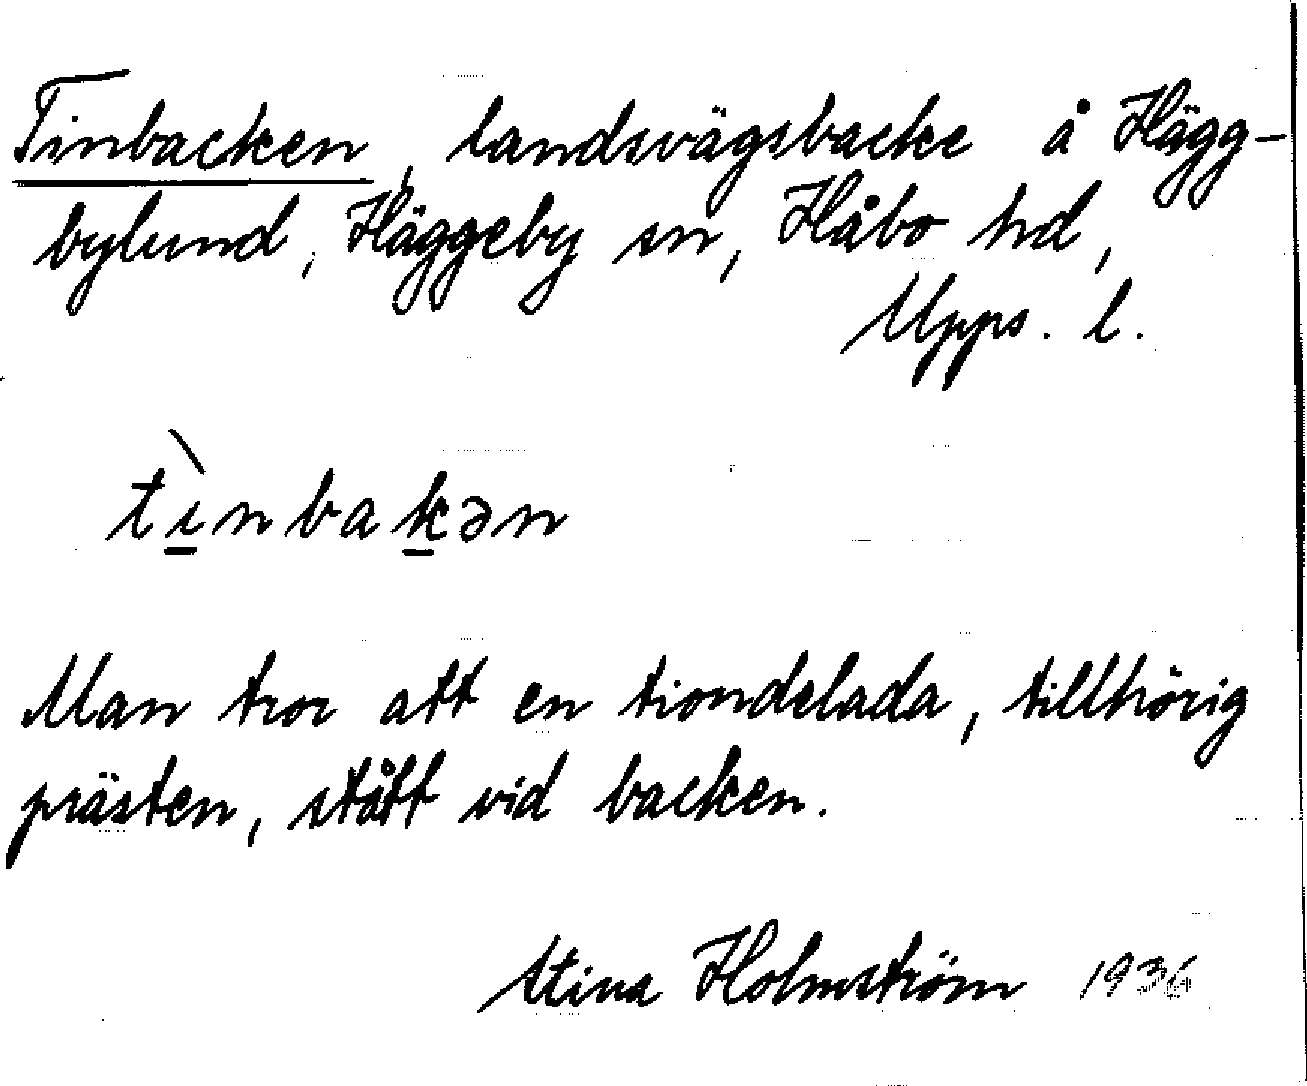 Tinbacken, landsvägsbacke å Hägg-
bylund, Häggeby sn, Håbo hd,
Upps. l.
tìnbakən
Man tror att en tiondelada, tillhörig
prästen, stått vid backen.
Stina Holmström 1936